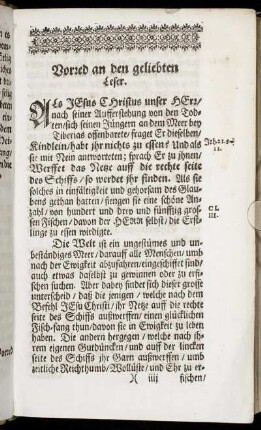 Vorred an den geliebten
Leser.
ALs JEsus CHristus unser HErr/
nach seiner Aufferstehung von den Tod-
ten/sich seinen Jüngern an dem Meer bey
Tiberias offenbarte/ fraget Er dieselben/
Kindlein/habt jhr nichts zu essen? Und als
sie mit Nein antworteten; sprach Er zu jhnen/
Werffet das Netze auff die rechte seite
des Schiffs/ so werdet jhr finden. Als sie
solches in einfältigkeit und gehorsam des Glau-
bens gethan hatten/ fiengen sie eine schöne An-
zahl/ von hundert und drey und fünfftig gros-
sen Fischen/ davon der HERR selbst/ die Erst-
linge zu essen würdigte.
Die Welt ist ein ungestümes und un-
beständiges Meer/ darauff alle Menschen/ umb
nach der Ewigkeit abzufahren/eingeschiffet sind/
auch etwas daselbst zu gewinnen oder zu erfi-
schen suchen. Aber dabey findet sich dieser grosse
unterscheid / daß die jenigen / welche nach dem
Befehl JEsu Christi/ jhr Netze auff die rechte
seite des Schiffs außwerffen/ einen glücklichen
Fisch-fang thun/davon sie in Ewigkeit zu leben
haben. Die andern hergegen / welche nach jh-
rem eigenen Gutdüncken/ und auff der lincken
seite des Schiffs jhr Garn außwerffen / umb
zeitliche Reichthumb/ Wollüste/ und Ehr zu er-
iiij fischen/
Joh:21.
11.
III.